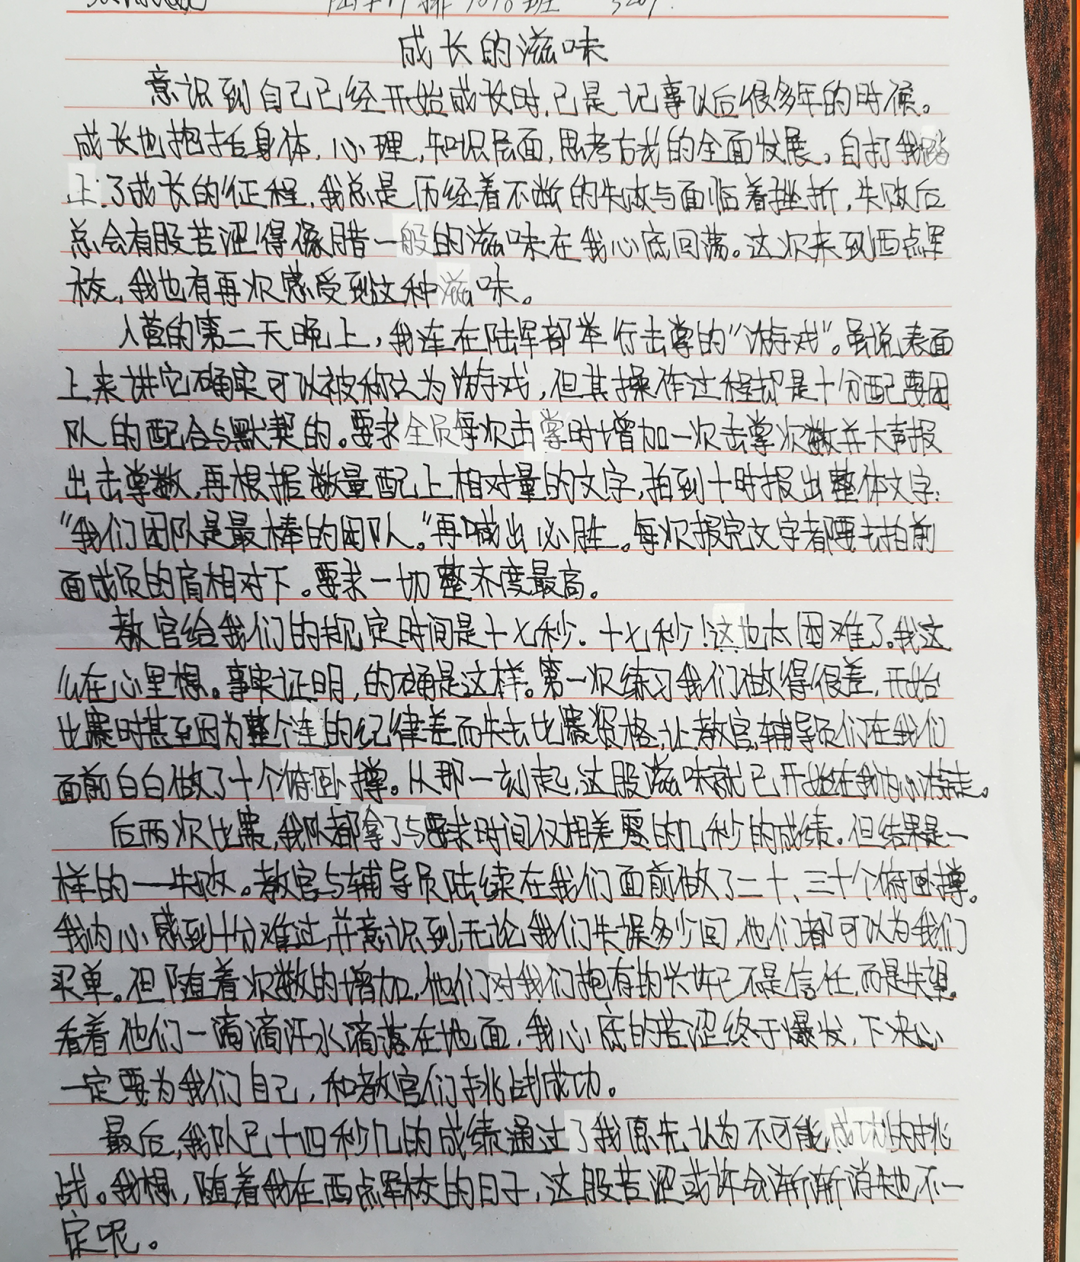 成长的滋味
意识到自己已经开始成长时,已是记事以后很多年的时候。
成长也抱括身体,心理,知识层面,思考方式的全面发展。自打我踏
上了成长的征程,我总是历经着不断的失败与面临着挫折,失败后
总会有股苦涩得像腊一般的滋味在我心底回荡。这次来到西点军
校,我也有再次感受到这种滋味。
入营的第二天晚上,我连在陆军部举行击掌的“游戏”。虽说表面
上来讲它确实可以被称之为游戏,但其操作过程却是十分配要团
队的配合与默契的。要求全员每次击掌时增加一次击掌次数并大声报
出击掌数,再根据数量配上相对量的文字,拍到十时报出整体文字:
“我们团队是最棒的团队。”再喊出必胜。每次报完文字都要去拍前
面成员的肩相对下。要求一切整齐度最高。
教官给我们的规定时间是十七秒.十七秒!这也太困难了。我这
么在心里想。事实证明,的确是这样。第一次练习我们做得很差,开始
比赛时甚至因为整个连的纪律差而失去比赛资格,让教官,辅导员们在我们
面前白白做了十个俯卧撑。从那一刻起,这股滋味就已开始在我内心游走。
后两次比赛,我队都拿了与要求时间仅相差零的几秒的成绩。但结果是一
样的——失败。教官与辅导员陆续在我们面前做了二十、三十个俯卧撑。
我内心感到十分难过,并意识到无论我们失误多少回,他们都可以为我们
买单。但随着次数的增加,他们对我们抱有的兴许已不是信任,而是失望。
看着他们一滴滴汗水滴落在地面,我心底的苦涩终于爆发,下决心
一定要为我们自己,和教官们挑战成功。
最后,我队已十四秒几的成绩通过了我原先认为不可能成功的挑
战。我想,随着我在西点军校的日子,这股苦涩或许会渐渐消失也不一
定呢。